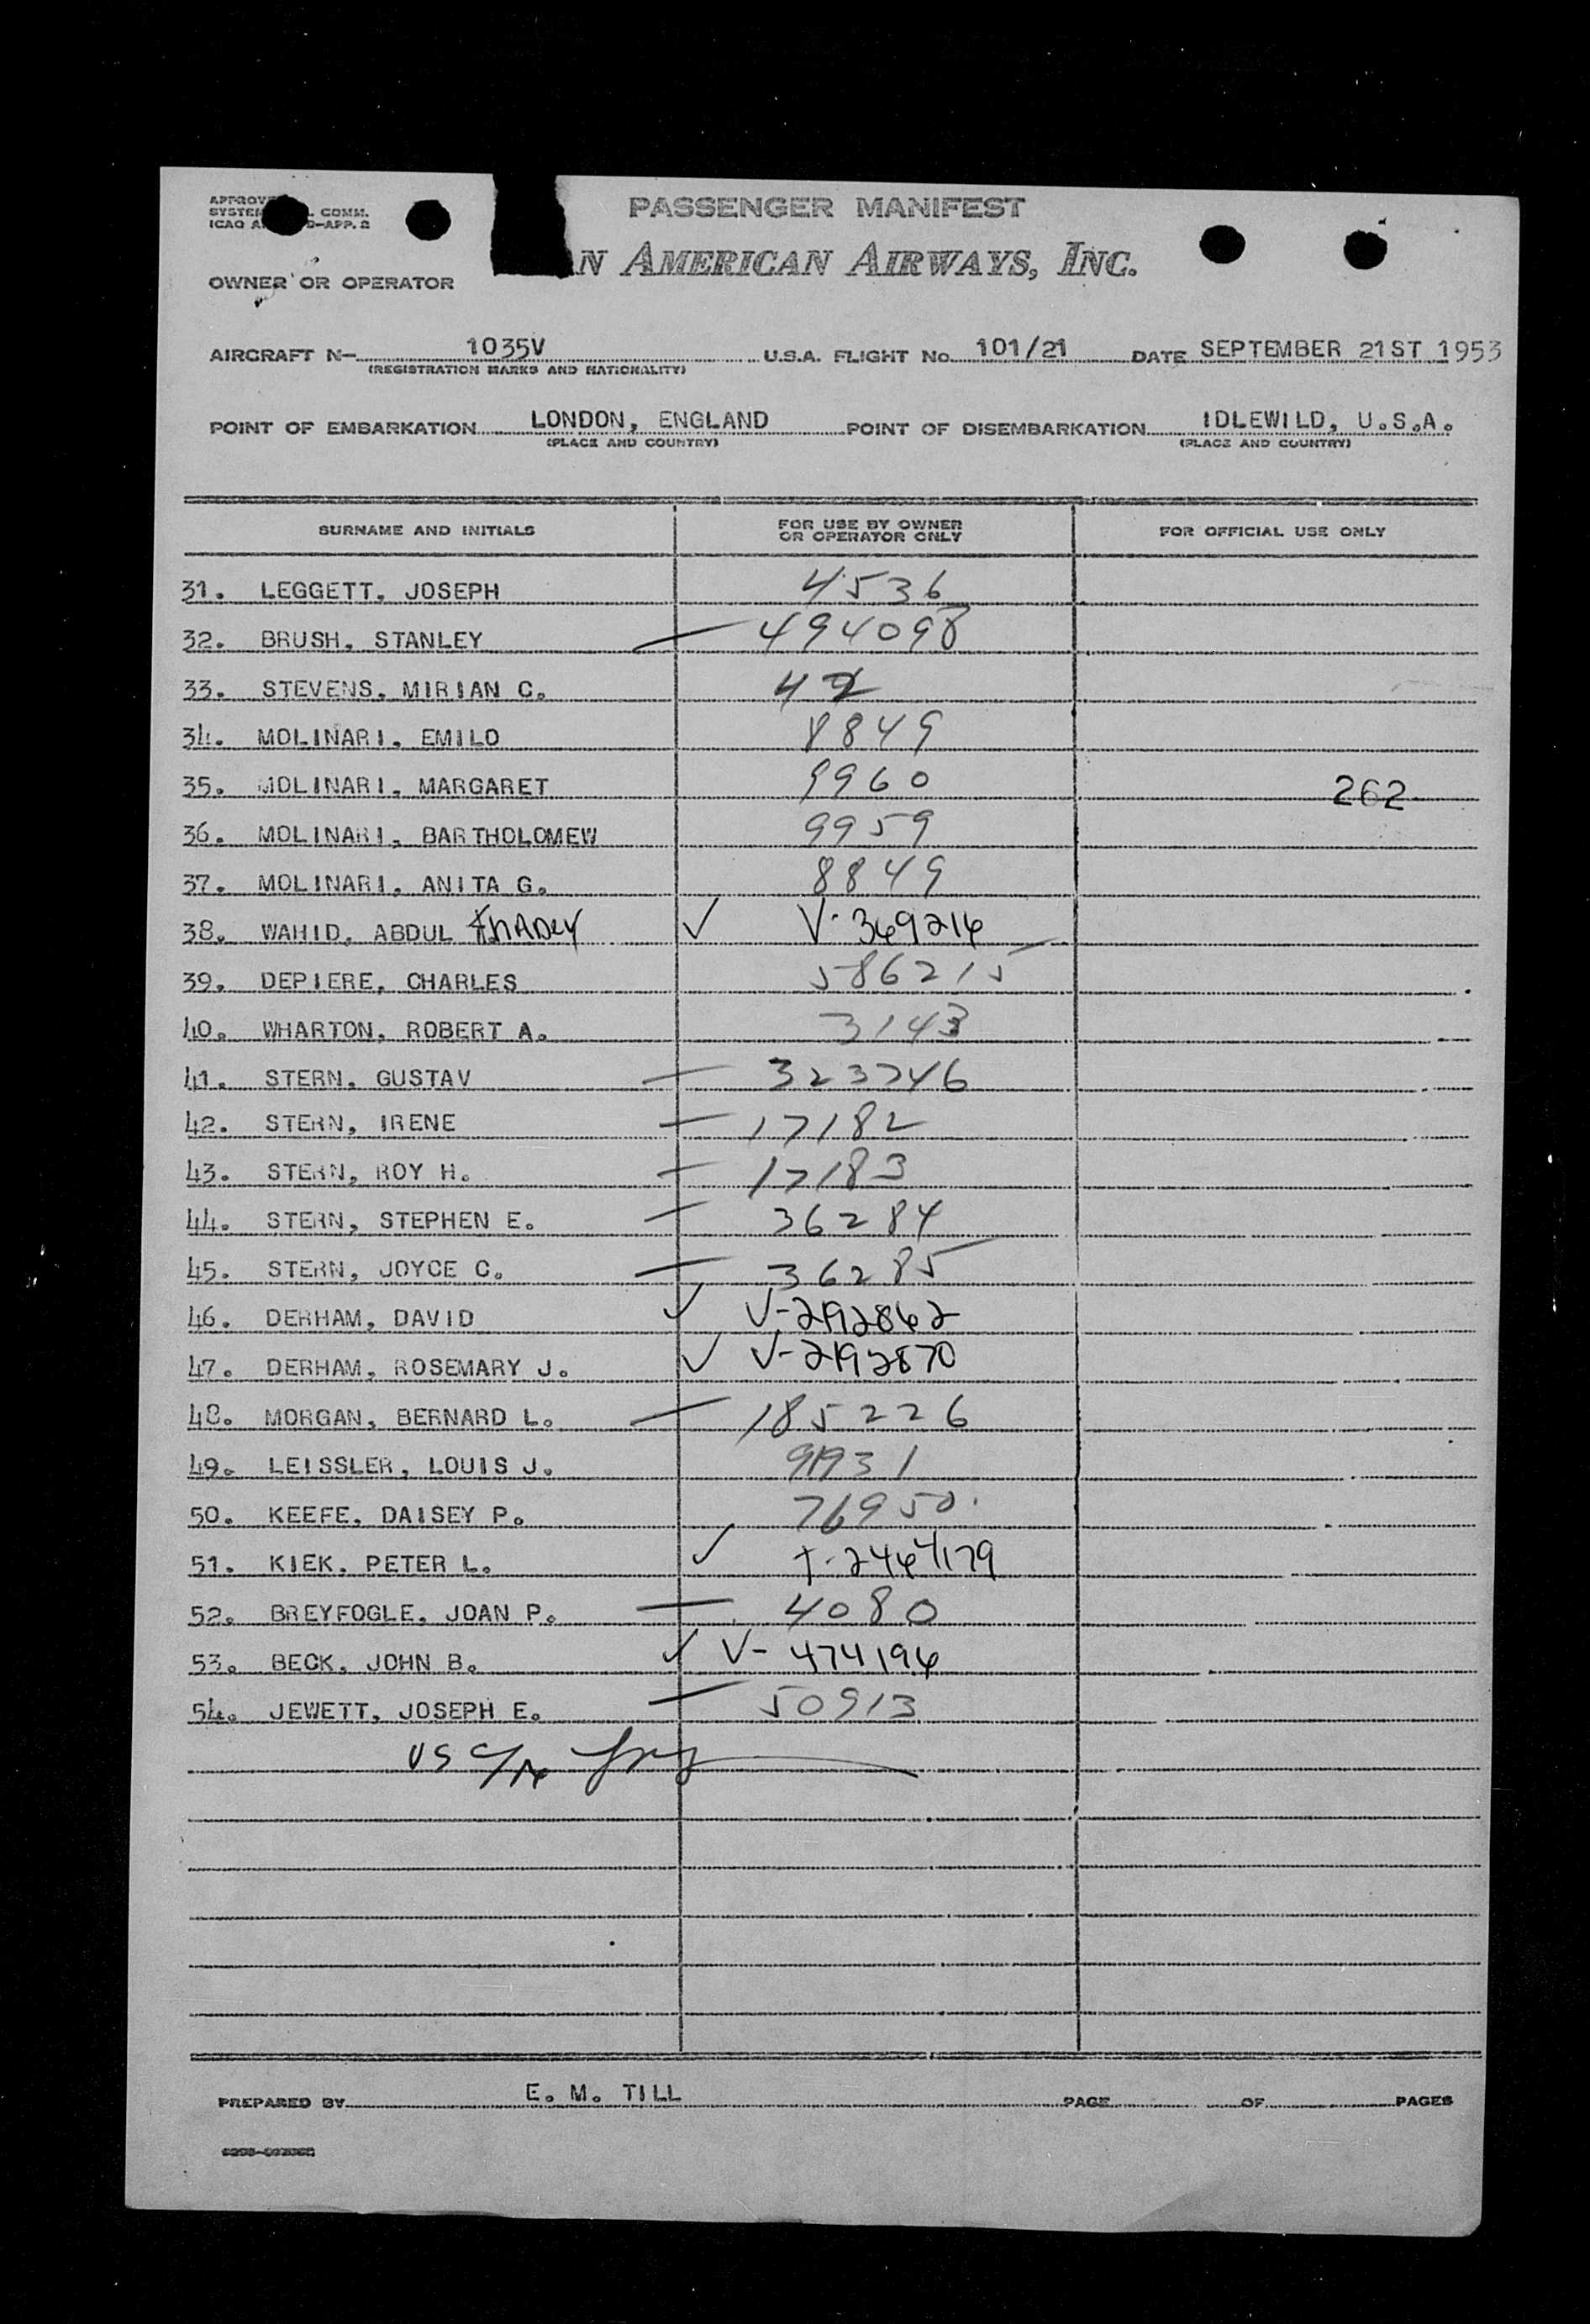 PASSENGER MANIFEST
COMM.
AMERICAN AIRWAYS, INC.
OWNER OR OPERATOR
AIRCRAFT N- 1035V U.S.A. FLIGHT No. 101/21 DATE SEPTEMBER 21ST 1953
(REGISTRATION MARKS AND NATIONALITY)
POINT OF EMBARKATION LONDON, ENGLAND POINT OF DISEMBARKATION IDLEWILD, U.S.A.
(PLACE AND COUNTRY) (PLACE AND COUNTRY)
SURNAME AND INITIALS FOR USE BY OWNER OR OPERATOR ONLY FOR OFFICIAL USE ONLY
31. LEGGETT, JOSEPH 4536
32. BRUSH, STANLEY 494098
33. STEVENS, MIRIAN C. 42
34. MOLINARI, EMILO 8849
35. MOLINARI, MARGARET 9960 262
36. MOLINARI, BARTHOLOMEW 9959
37. MOLINARI, ANITA G. 8849
38. WAHID, ABDUL ✓ V-369216
39. DEPIERE, CHARLES 586215
40. WHARTON, ROBERT A. 3143
41. STERN, GUSTAV 323746
42. STERN, IRENE 17182
43. STERN, ROY H. 17183
44. STERN, STEPHEN E. 36284
45. STERN, JOYCE C. 36285
46. DERHAM, DAVID ✓ V-2192862
47. DERHAM, ROSEMARY J. ✓ V-2192870
48. MORGAN, BERNARD L. 185226
49. LEISSLER, LOUIS J.
50. KEEFE, DAISEY P. 76950
51. KIEK, PETER L. ✓
52. BREYFOGLE, JOAN P. 4080
53. BECK, JOHN B. ✓ V-474196
54. JEWETT, JOSEPH E. 50913
US
PREPARED BY E. M. TILL PAGE OF PAGES